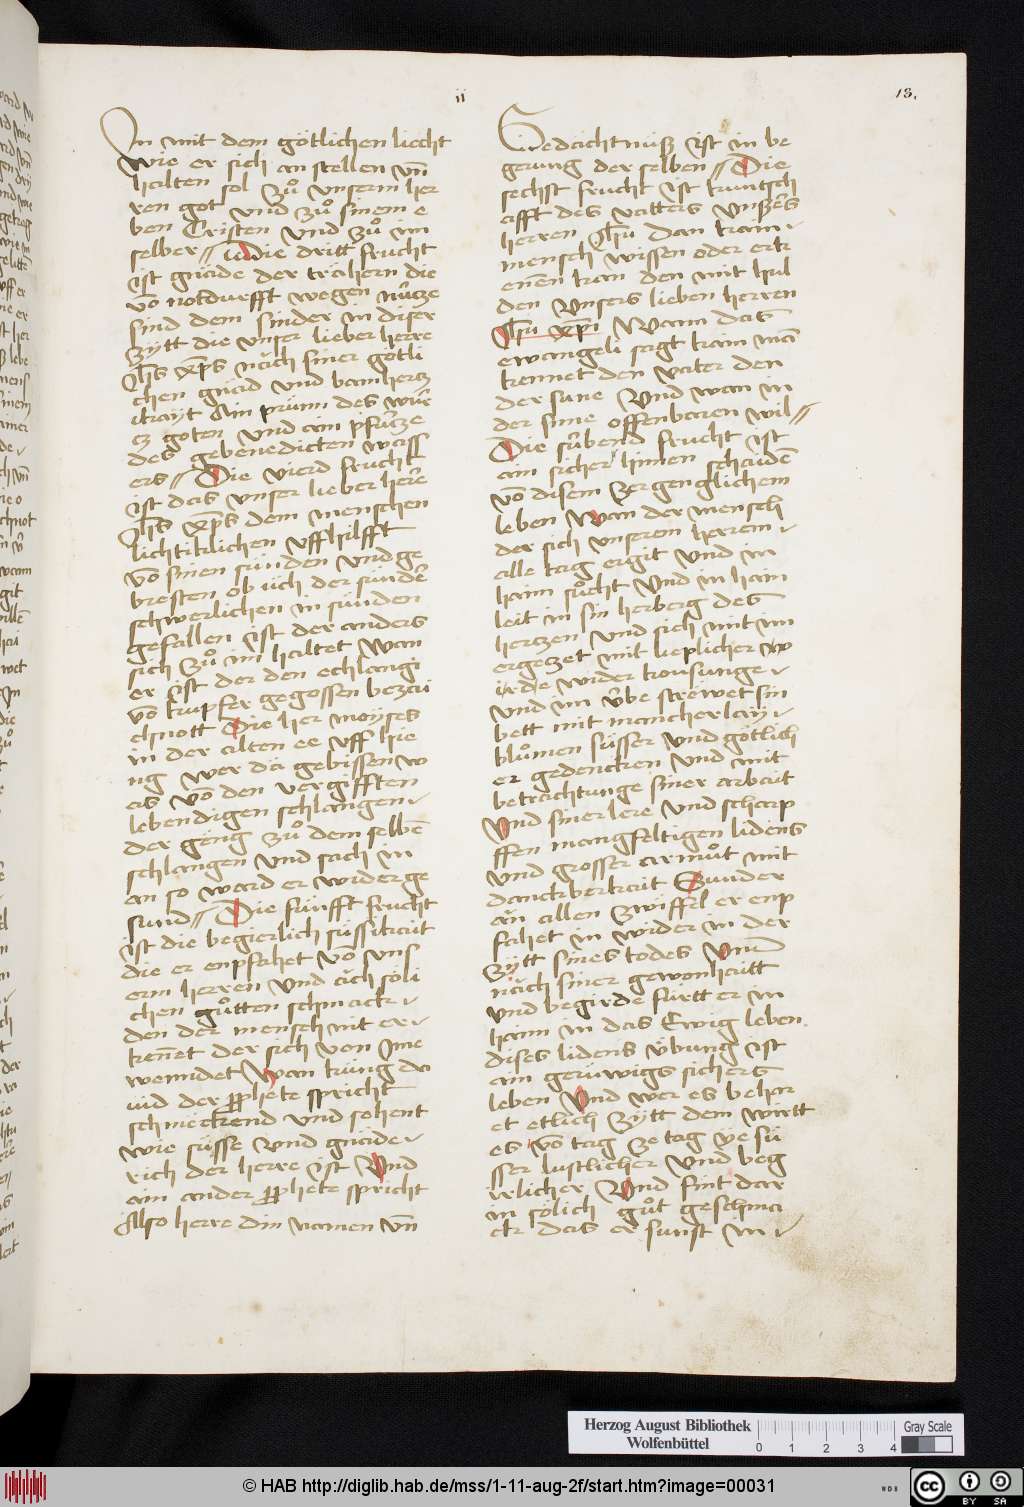 ii
13.
In mit dem götlichen liecht
wie er sich an stellen vn̄
halten sol zů vnserm her
ren got vnd zů sinem e
ben Cristen vnd zů im
selber // Die dritt frucht
ist gnade der trähern die
vō notdurfft wegen nůtze
sind dem sinder in diser
zÿtt die vnser lieber herre
Jhs xp̄s näch siner götli
chen gnäd vnd barmhertz
ikayt Am prünn des wůr
tz goten vnd ain pfůtze
des gebenedicten wass
ers // Die vierd frucht
ist das vnser lieber herē
Jhs xp̄s dem menschen
lichtiklichen vff hilfft
vō sinen sünden vnd ge
bresten ob üch der sundē
schwerlichen in sünden
gefallen ist der anders
sich zů im haltet wan
er ist der den echlangī
vō kupfer gegossen bezai
chnott Die her moÿses
in der alten ee vff hie
ng wer dä gebissen w
as vō den vergifften
lebendigen schlangen
der geng zů dem selbē
schlangen vnd sach in
an so ward er wider ge
sund // Die fünfft frucht
ist die begierlich süssikait
die er enpfahet vō vns
erm herren vnd äch söli
chen gůtten schmack
den der mensch nit er
kennet der sich von ime
wenndet Wan küng da
uid der p̄phete spricht
schmeckend vnd sehent
wie süsse vnd gnäde
rich der herre ist Vnd
ain ander p̄phete spricht
Also herre din namen vn̄
Gedächtnüß ist in be
gerung der selben // Die
sechst frucht ist kuntsch
afft des vatters vnsers
herren Jhū dan kain
mensch wissen oder erk
enen kan den mit hul
den vnsers lieben herren
Jhū xp̄i Wann das
ewangeli sagt kain mā
kennet den vater den
der sune vnd wan in
der sune offenbaren wil //
Die sübend frucht ist
ain sicher hinnen schaidē
vō disem zergenglichem
leben Wan der mensch
der sich vnserem herren
alle tag ergit vnd in
haim sůcht vnd in hain
leit in sin herberg des
hertzen vnd sich mit im
ergetzet mit lieplicher w
irde wider kosunge
vnd im ůbe strewet sin
bett mit mancherlaÿ
blůmen süsser vnd götlich
er gedencken vnd mit
betrachtunge siner arbait
Vnd siner lere vnd scharp
ffen mangfeltigen lidens
vnd grosser armůt mit
danckberkait Sunder
än allen zwiffel er enp
fahet in wider in der
zÿtt sines todes Vnd
näch siner gewonhaitt
vnd begirde fürtt er in
haim in das Ewig leben
dises lidens ůbung ist
ain gerüwigs sichers
leben Vnd wer es behar
et etlich zÿtt dem wirtt
es vō tag ze tag ÿe sü
sser lustlicher vnd beg
irlicher Vnd fint dar
in sölich gůt geschma
ck das er sunst in
Herzog August Bibliothek
Wolfenbüttel
0 1 2 3 4
Gray Scale
© HAB http://diglib.hab.de/mss/1-11-aug-2f/start.htm?image=00031
WDB
cc BY SA